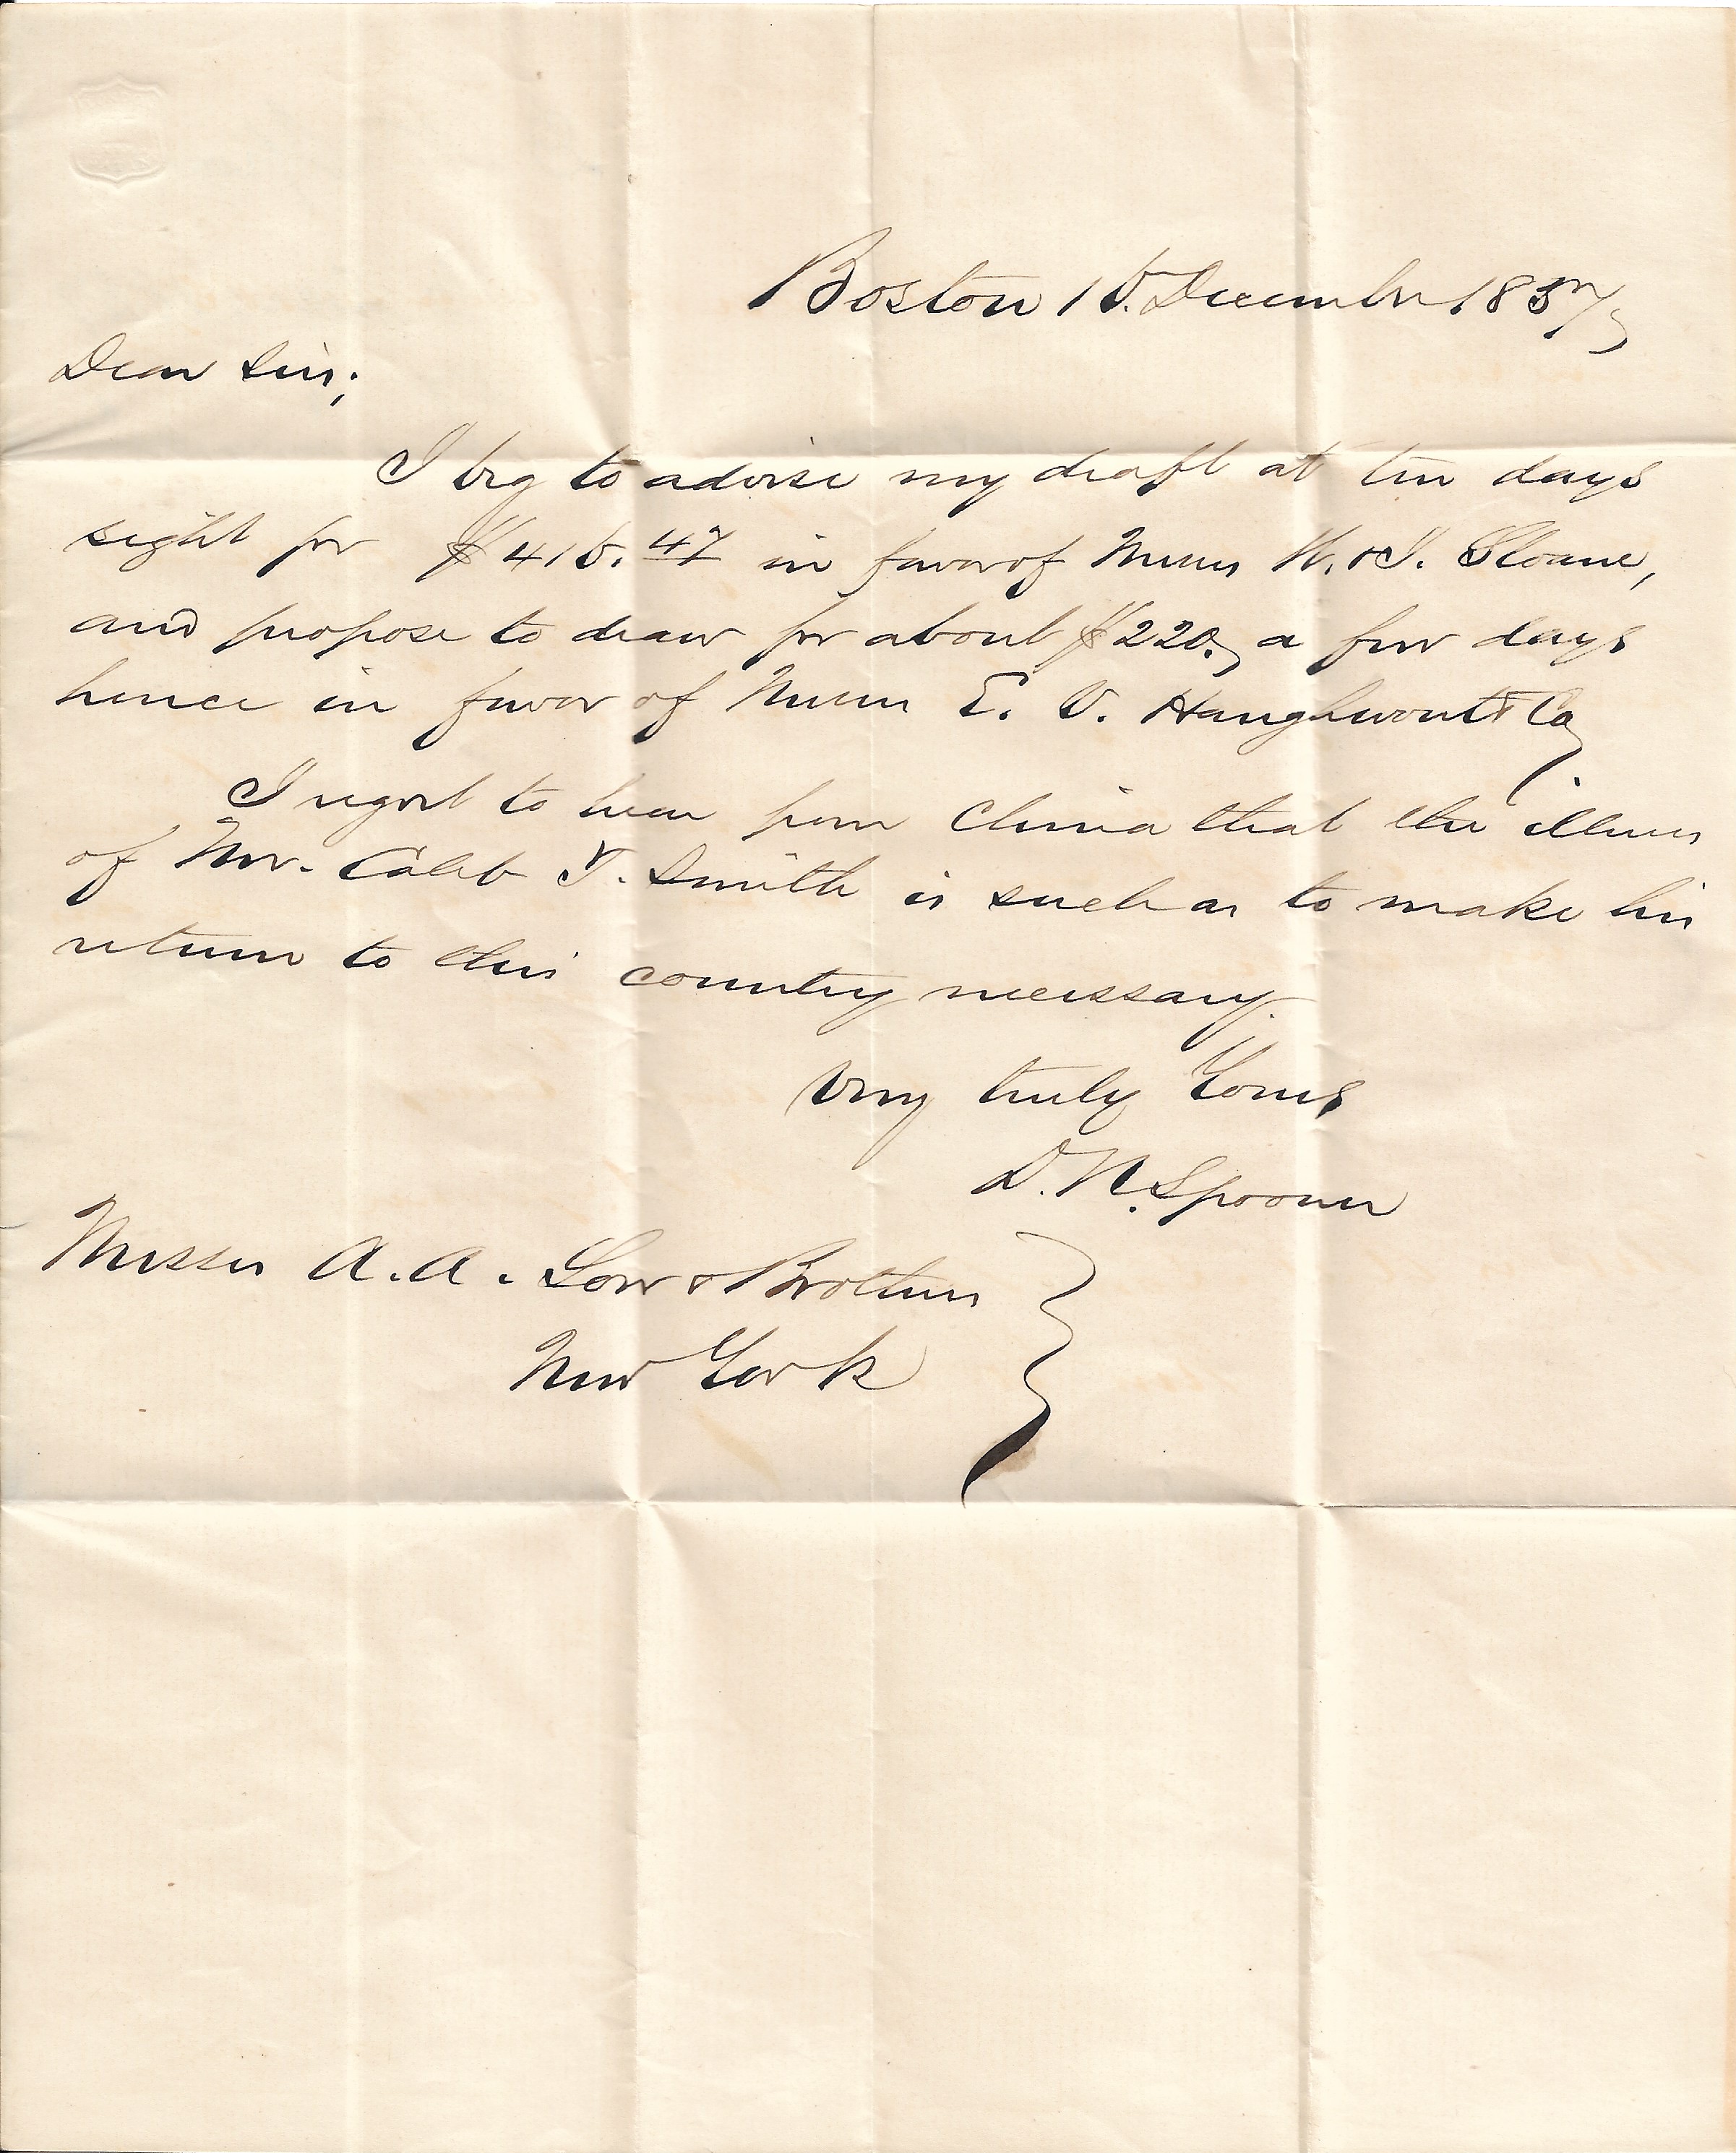 Boston 15. December 1857,
Dear Sirs;
I beg to advise my draft at ten days
sight for $415.47 in favor of Messrs W. & J. Sloane,
and propose to draw for about $220, a few days
hence in favor of Messrs E. V. Haughwout & Co.
I regret to hear from China that the illness
of Mr. Caleb T. Smith is such as to make his
return to this country necessary.
Very truly Yours
D. N. Spooner
Messrs A. A. Low & Brothers
New York